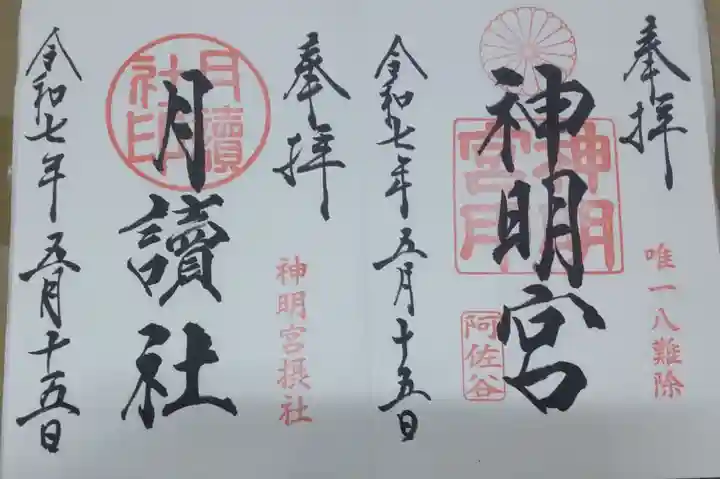 奉拝
唯一八難除
神明宮
神明宮印
阿佐谷
令和七年五月十五日
奉拝
神明宮摂社
月讀社
月讀社印
令和七年五月十五日